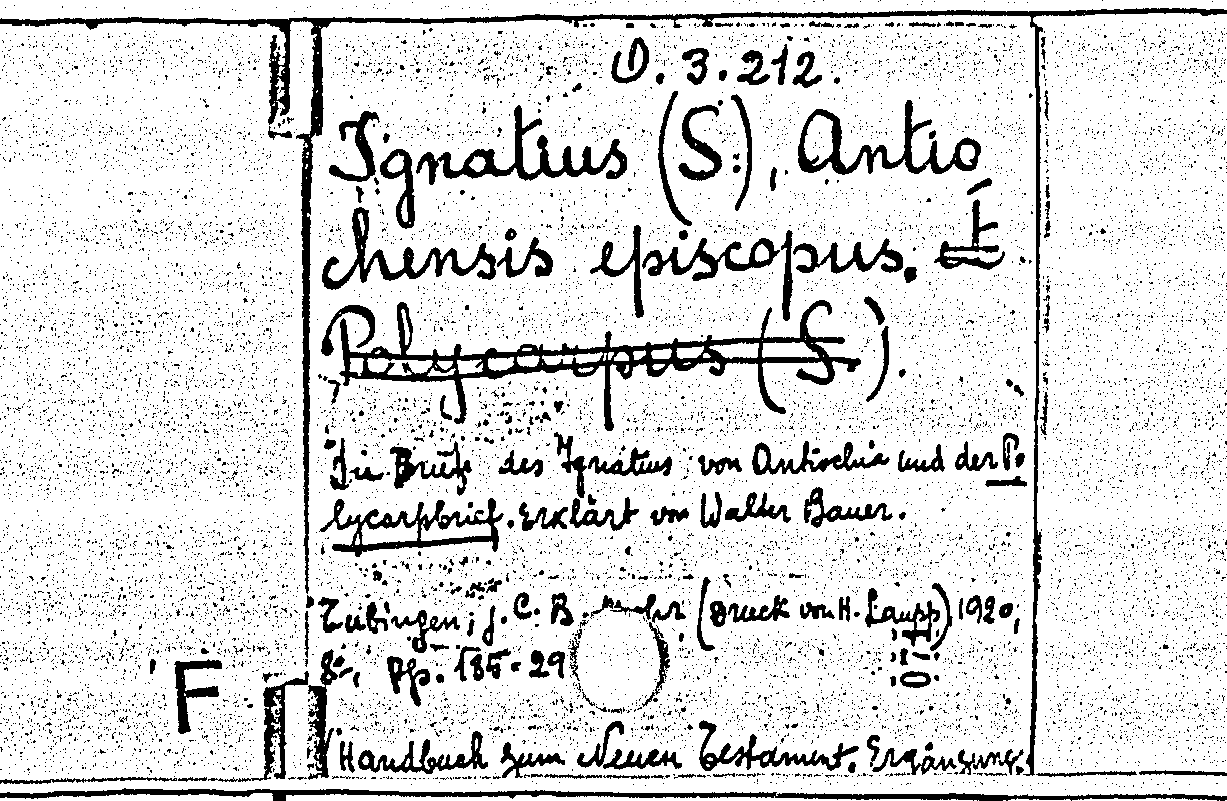 O. 3. 212.
Ignatius (S.), Antio
chensis episcopus. E
Polycarpus (S.).
Die Briefe des Ignatius von Antiochia und der Po
lycarpbrief. Erklärt von Walter Bauer.
Tübingen; J. C. B. Mohr (Druck von H. Laupp) 1920,
8º, Pp. 185-29
F
(Handbuch zum Neuen Testament. Ergänzung.